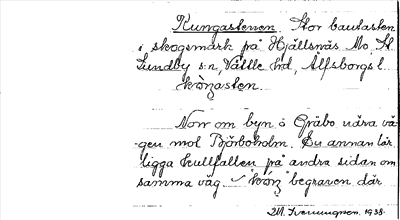 Kungastenen. Stor bautasten
i skogsmark på Hjällsnäs Mo, St
Lundby s:n, Vättle hd, Älfsborgs l.
kòŋasten.
Norr om byn o Gråbo nära vä-
gen mot Björboholm. En annan lär
ligga kullfallen på andra sidan om
samma väg. "kòŋ" begraven där
M. Svenungson. 1938.